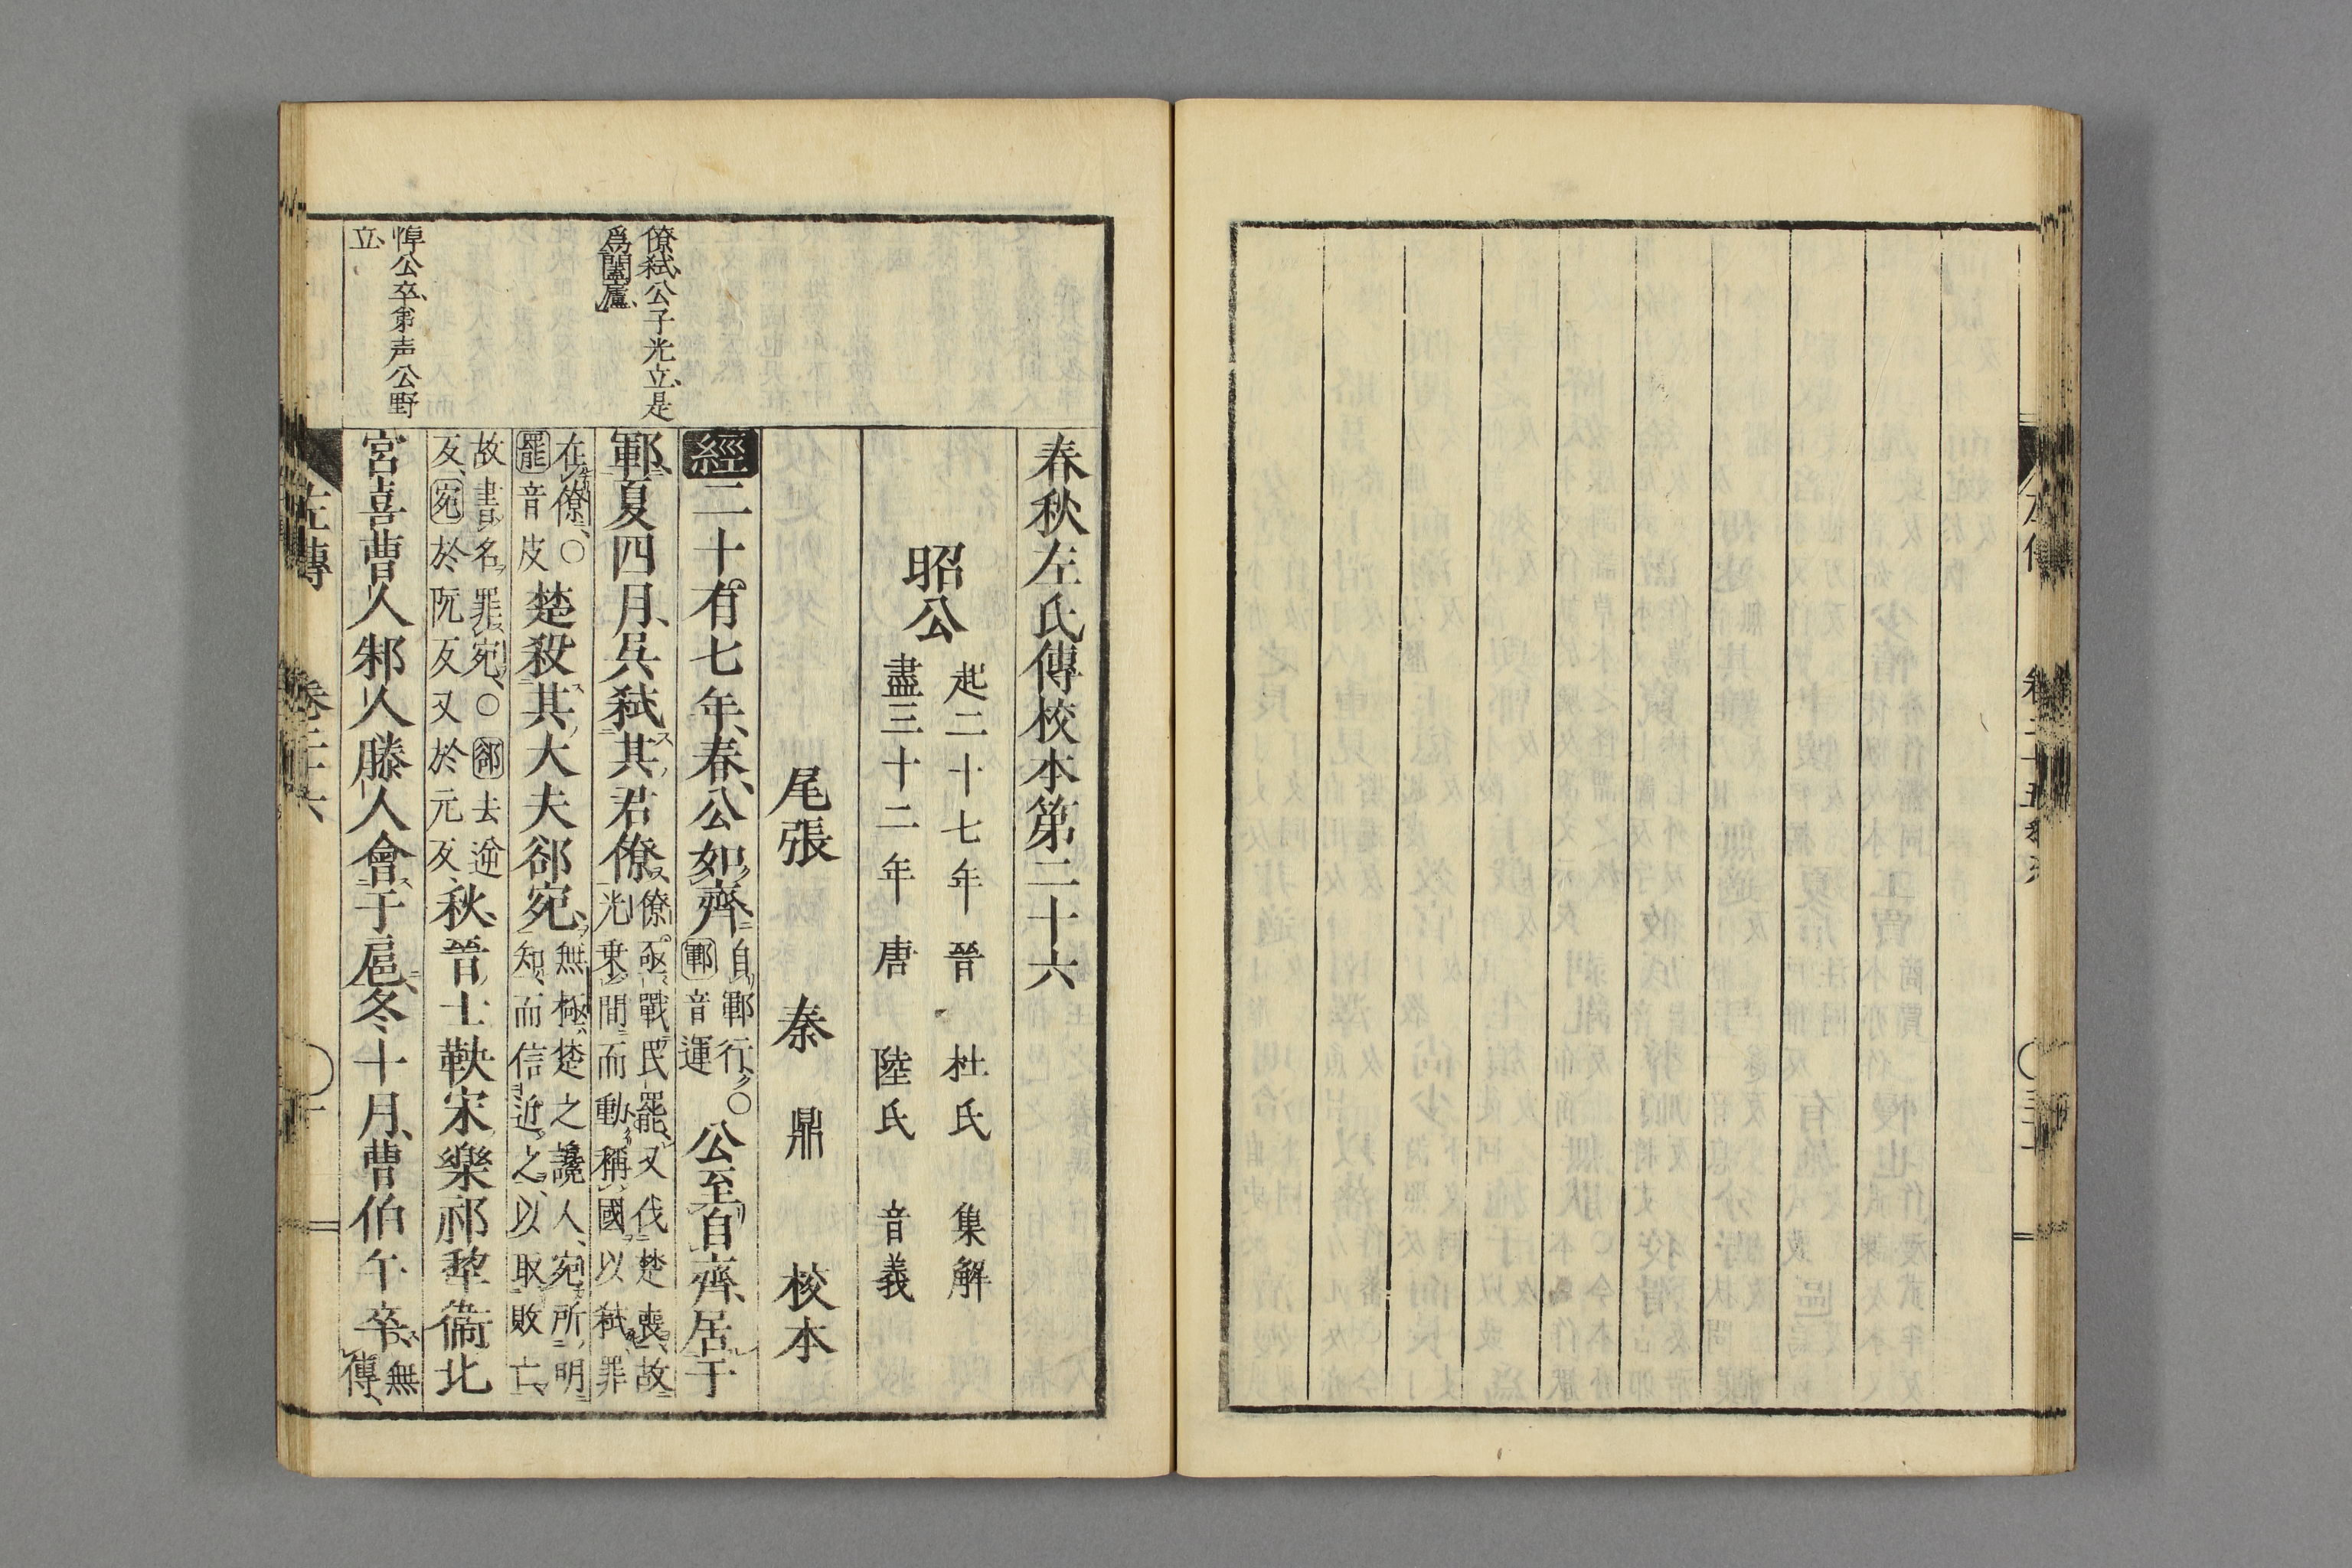 春秋左氏傳校本第二十六
昭公
起二十七年 晉 杜氏 集解
盡三十二年 唐 陸氏 音義
尾張 秦 鼎 校本
經二十有七年春公如齊
自鄆行〇
鄆音運
公至自齊居于
鄆夏四月吳弑其君僚
僚亟戰民罷又伐楚喪故
光乗間而動稱國以弑罪
在僚〇
罷音皮
楚殺其大夫郤宛
無極楚之讒人宛所明
知而信近之以取敗亡
故書名罪宛〇郤去逆
反宛於阮反又於元反
秋晉士鞅宋樂祁犂衞北
宮喜曹人邾人滕人會于扈冬十月曹伯午卒
無
傳
僚弑公子光立是
爲闔廬
悼公卒弟声公野
立
左傳 卷二十六